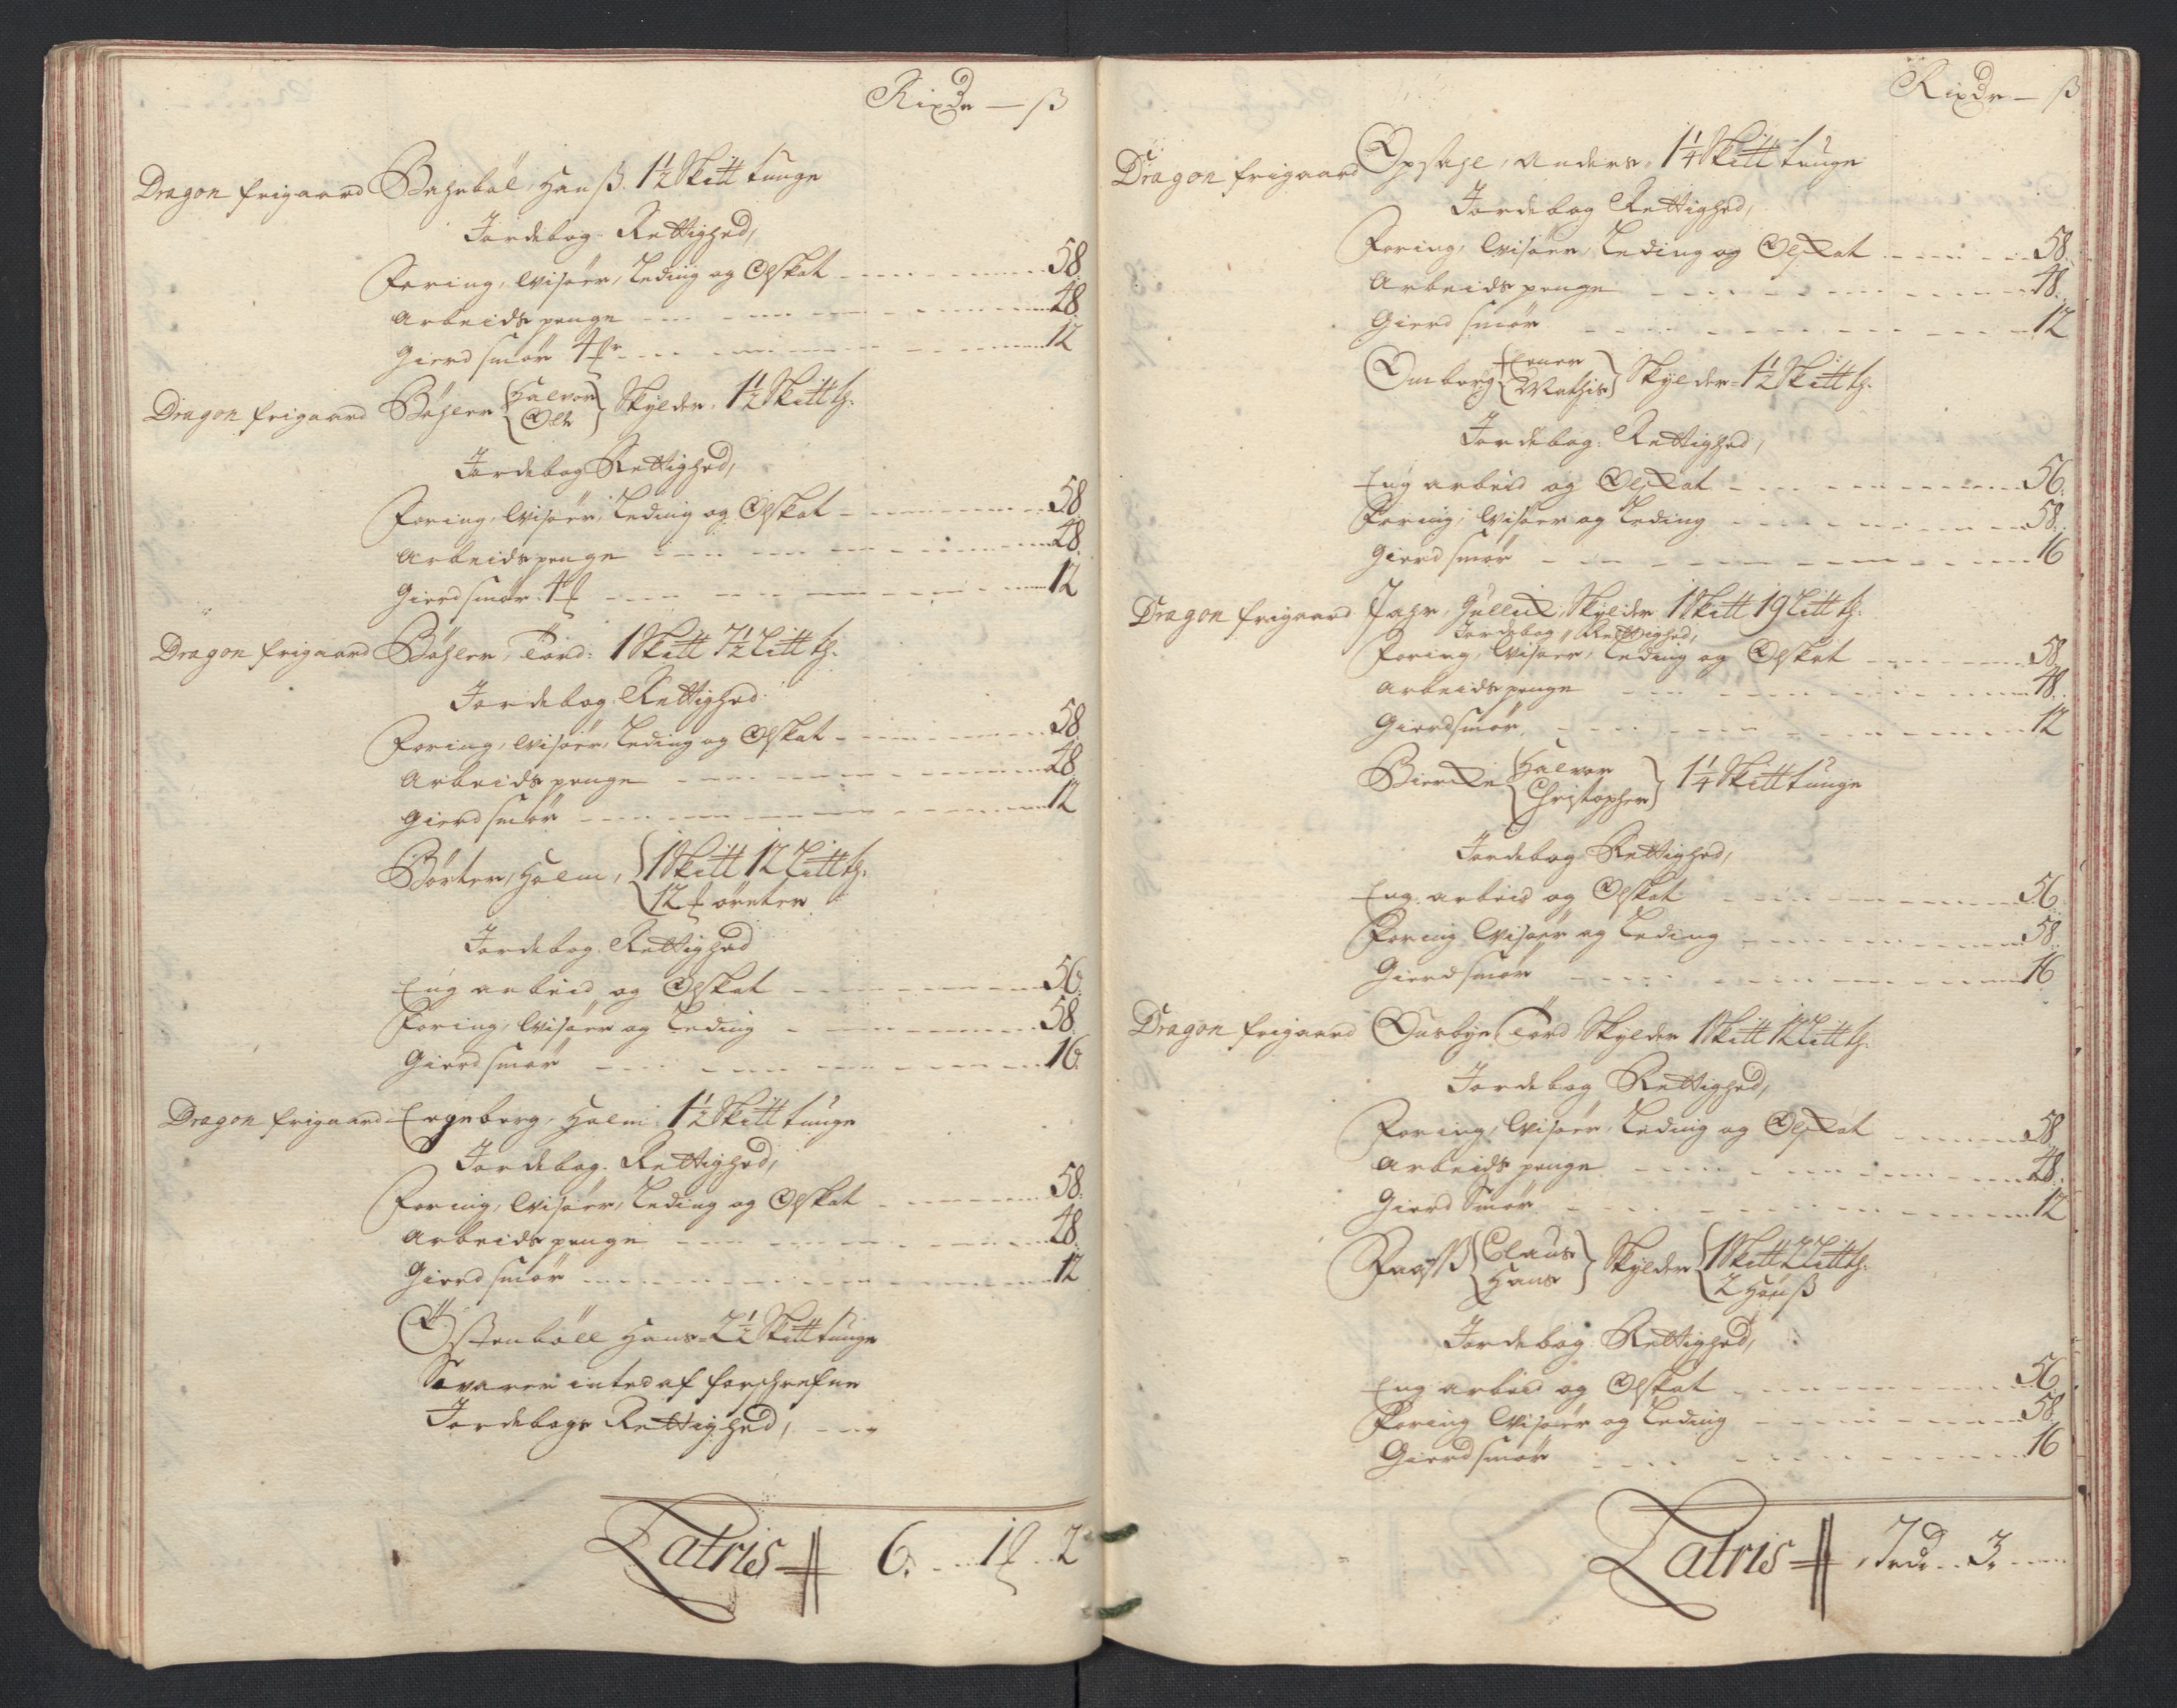 Rixdr — ß
Dragon frigaard Bahrböl, Hanß. 1½ Skitt tunge
Jordebog Rettighed,
Foring, Wisöer, Leding og Olskat 58.
Arbeids penge 48.
Gierd smör 4 12
Dragon frigaard Böhler Halvor Ole Skylder 1½ Skitt t:
Jordebog Rettighed,
Foring, Wisöer, Leding og Olskat 58.
Arbeids penge 48.
Gierd smör 4 12
Dragon frigaard Böhler, Tord: 1 Skitt 7½ Litt t:
Jordebog Rettighed
Foring, Wisöer, Leding og Olskat 58.
Arbeids penge 48.
Gierd smör 12
Börter, Holm, 1 Skitt 12 Litt t:
12 öreter
Jordebog Rettighed
Eng arbeid og Olskat 56.
Foring, Wisöer og Leding 58.
Gierd smör 16.
Dragon frigaard Egeberg, Holm 1½ Skitt tunge
Jordebog Rettighed,
Foring, Wisöer, Leding og Olskat 58.
Arbeids penge 48.
Gierd smör 12
Östenböll Hans 2½ Skitt tunge
Svarer inted af forschrefne
Jordebogs Rettighed,
Latris 6. 1 2
Rixdr — ß
Dragon frigaard Opsahl, Anders, 1¼ Skitt tunge
Jordebog Rettighed,
Foring, Wisöer, Leding og Olskat 58.
Arbeids penge 48.
Gierd smör 12
Omborg Ener Mathis Skylder 1½ Skitt t:
Jordebog Rettighed,
Eng arbeid og Olskat 56.
Foring, Wisöer og Leding 58.
Gierd smör 16
Dragon frigaard Jahr, Gullich, Skylder 1 Skitt 19 Litt t:
Jordebog Rettighed,
Foring, Wisöer, Leding og Olskat 58
Arbeids penge 48.
Gierd smör 12
Bierche Halvor Christopher 1¼ Skitt tunge
Jordebog Rettighed,
Eng arbeid og Olskat 56
Foring Wisöer og Leding 58.
Gierd smör 16
Dragon frigaard Ousbye Tord Skylder 1 Skitt 12 Litt t:
Jordebog Rettighed,
Foring, Wisöer, Leding og Olskat 58
Arbeids penge 48.
Gierd Smör 12
Claus Hans Skylder 1 Skitt 2 Litt t:
2 Hanß
Jordebog Rettighed,
Eng arbeid og Olskat 56
Foring Wisöer og Leding 58.
Gierd smör 16
Latris 7 3.